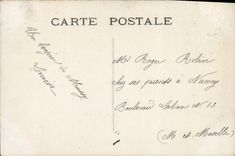 CARTE POSTALE
Un bonjour de Nancy
Mr Roger Robin
chez ses parents à Nancy
Boulevard Lobau Nº 13
(M et Moselle)